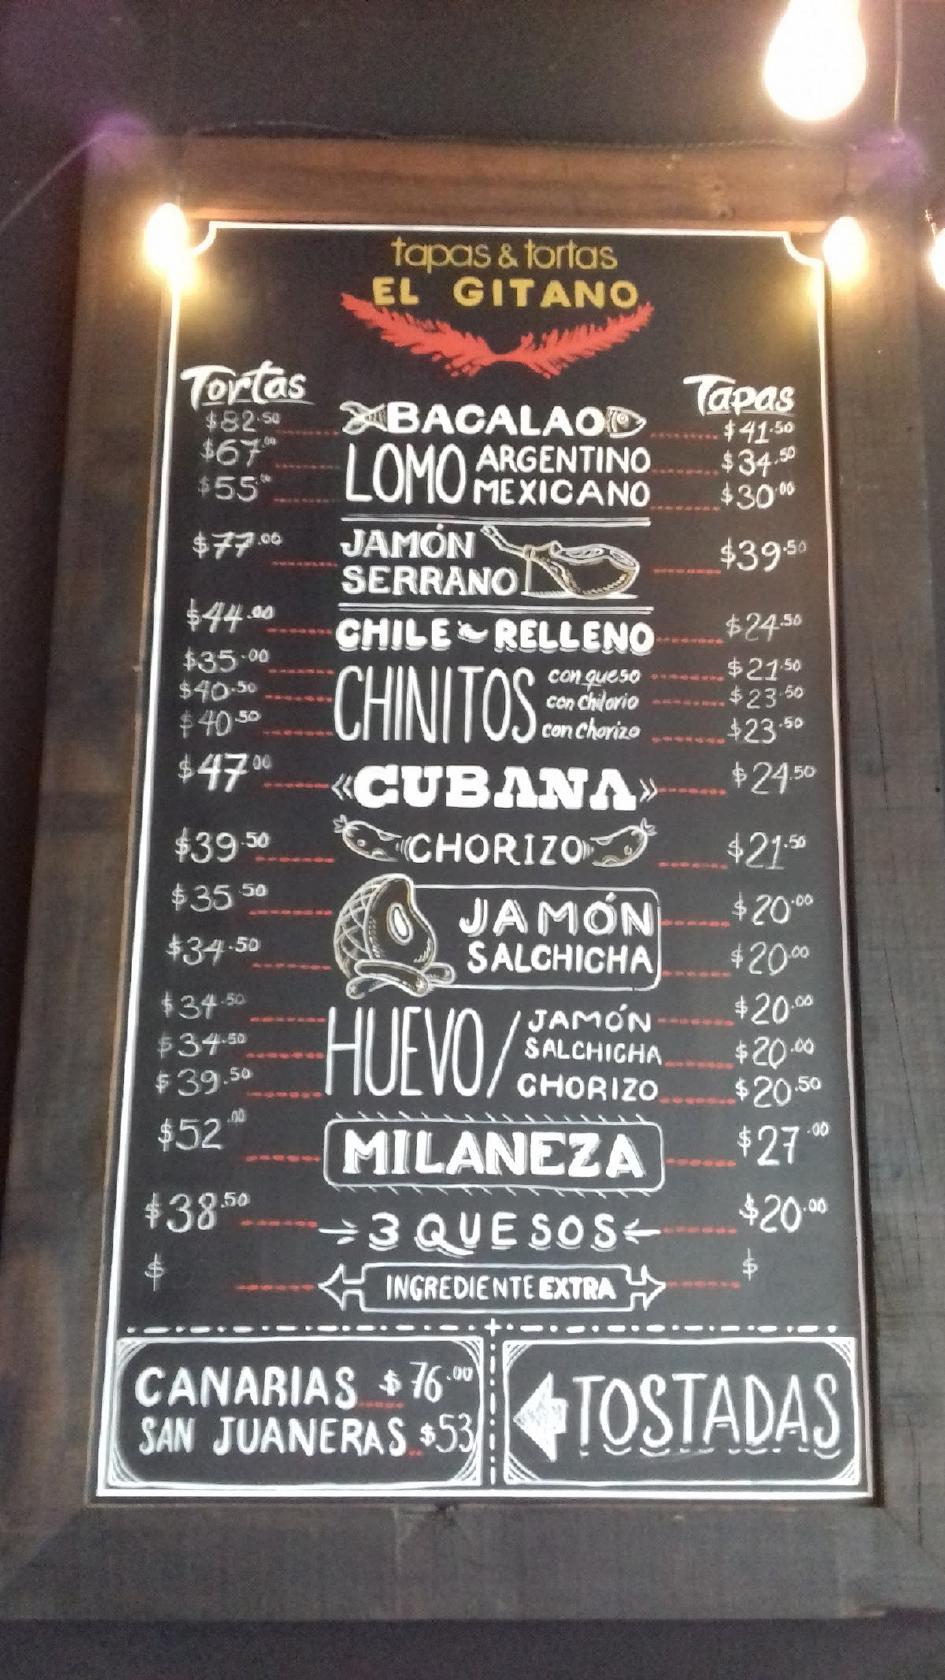 tapas & tortas
EL GITANO
Tortas Tapas
$82.50 BACALAO $41.50
$67.00 LOMO ARGENTINO $34.50
$55.00 MEXICANO $30.00
$77.00 JAMÓN SERRANO $39.50
$44.00 CHILE RELLENO $24.50
$35.00 CHINITOS con queso $21.50
$40.50 con chilorio $23.50
$40.50 con chorizo $23.50
$47.00 «CUBANA» $24.50
$39.50 CHORIZO $21.50
$35.50 JAMÓN $20.00
$34.50 SALCHICHA $20.00
$34.50 HUEVO/ JAMÓN $20.00
$34.50 SALCHICHA $20.00
$39.50 CHORIZO $20.50
$52.00 MILANEZA $27.00
$38.50 3 QUESOS $20.00
$ INGREDIENTE EXTRA $
CANARIAS $76.00
SAN JUANERAS $53
TOSTADAS